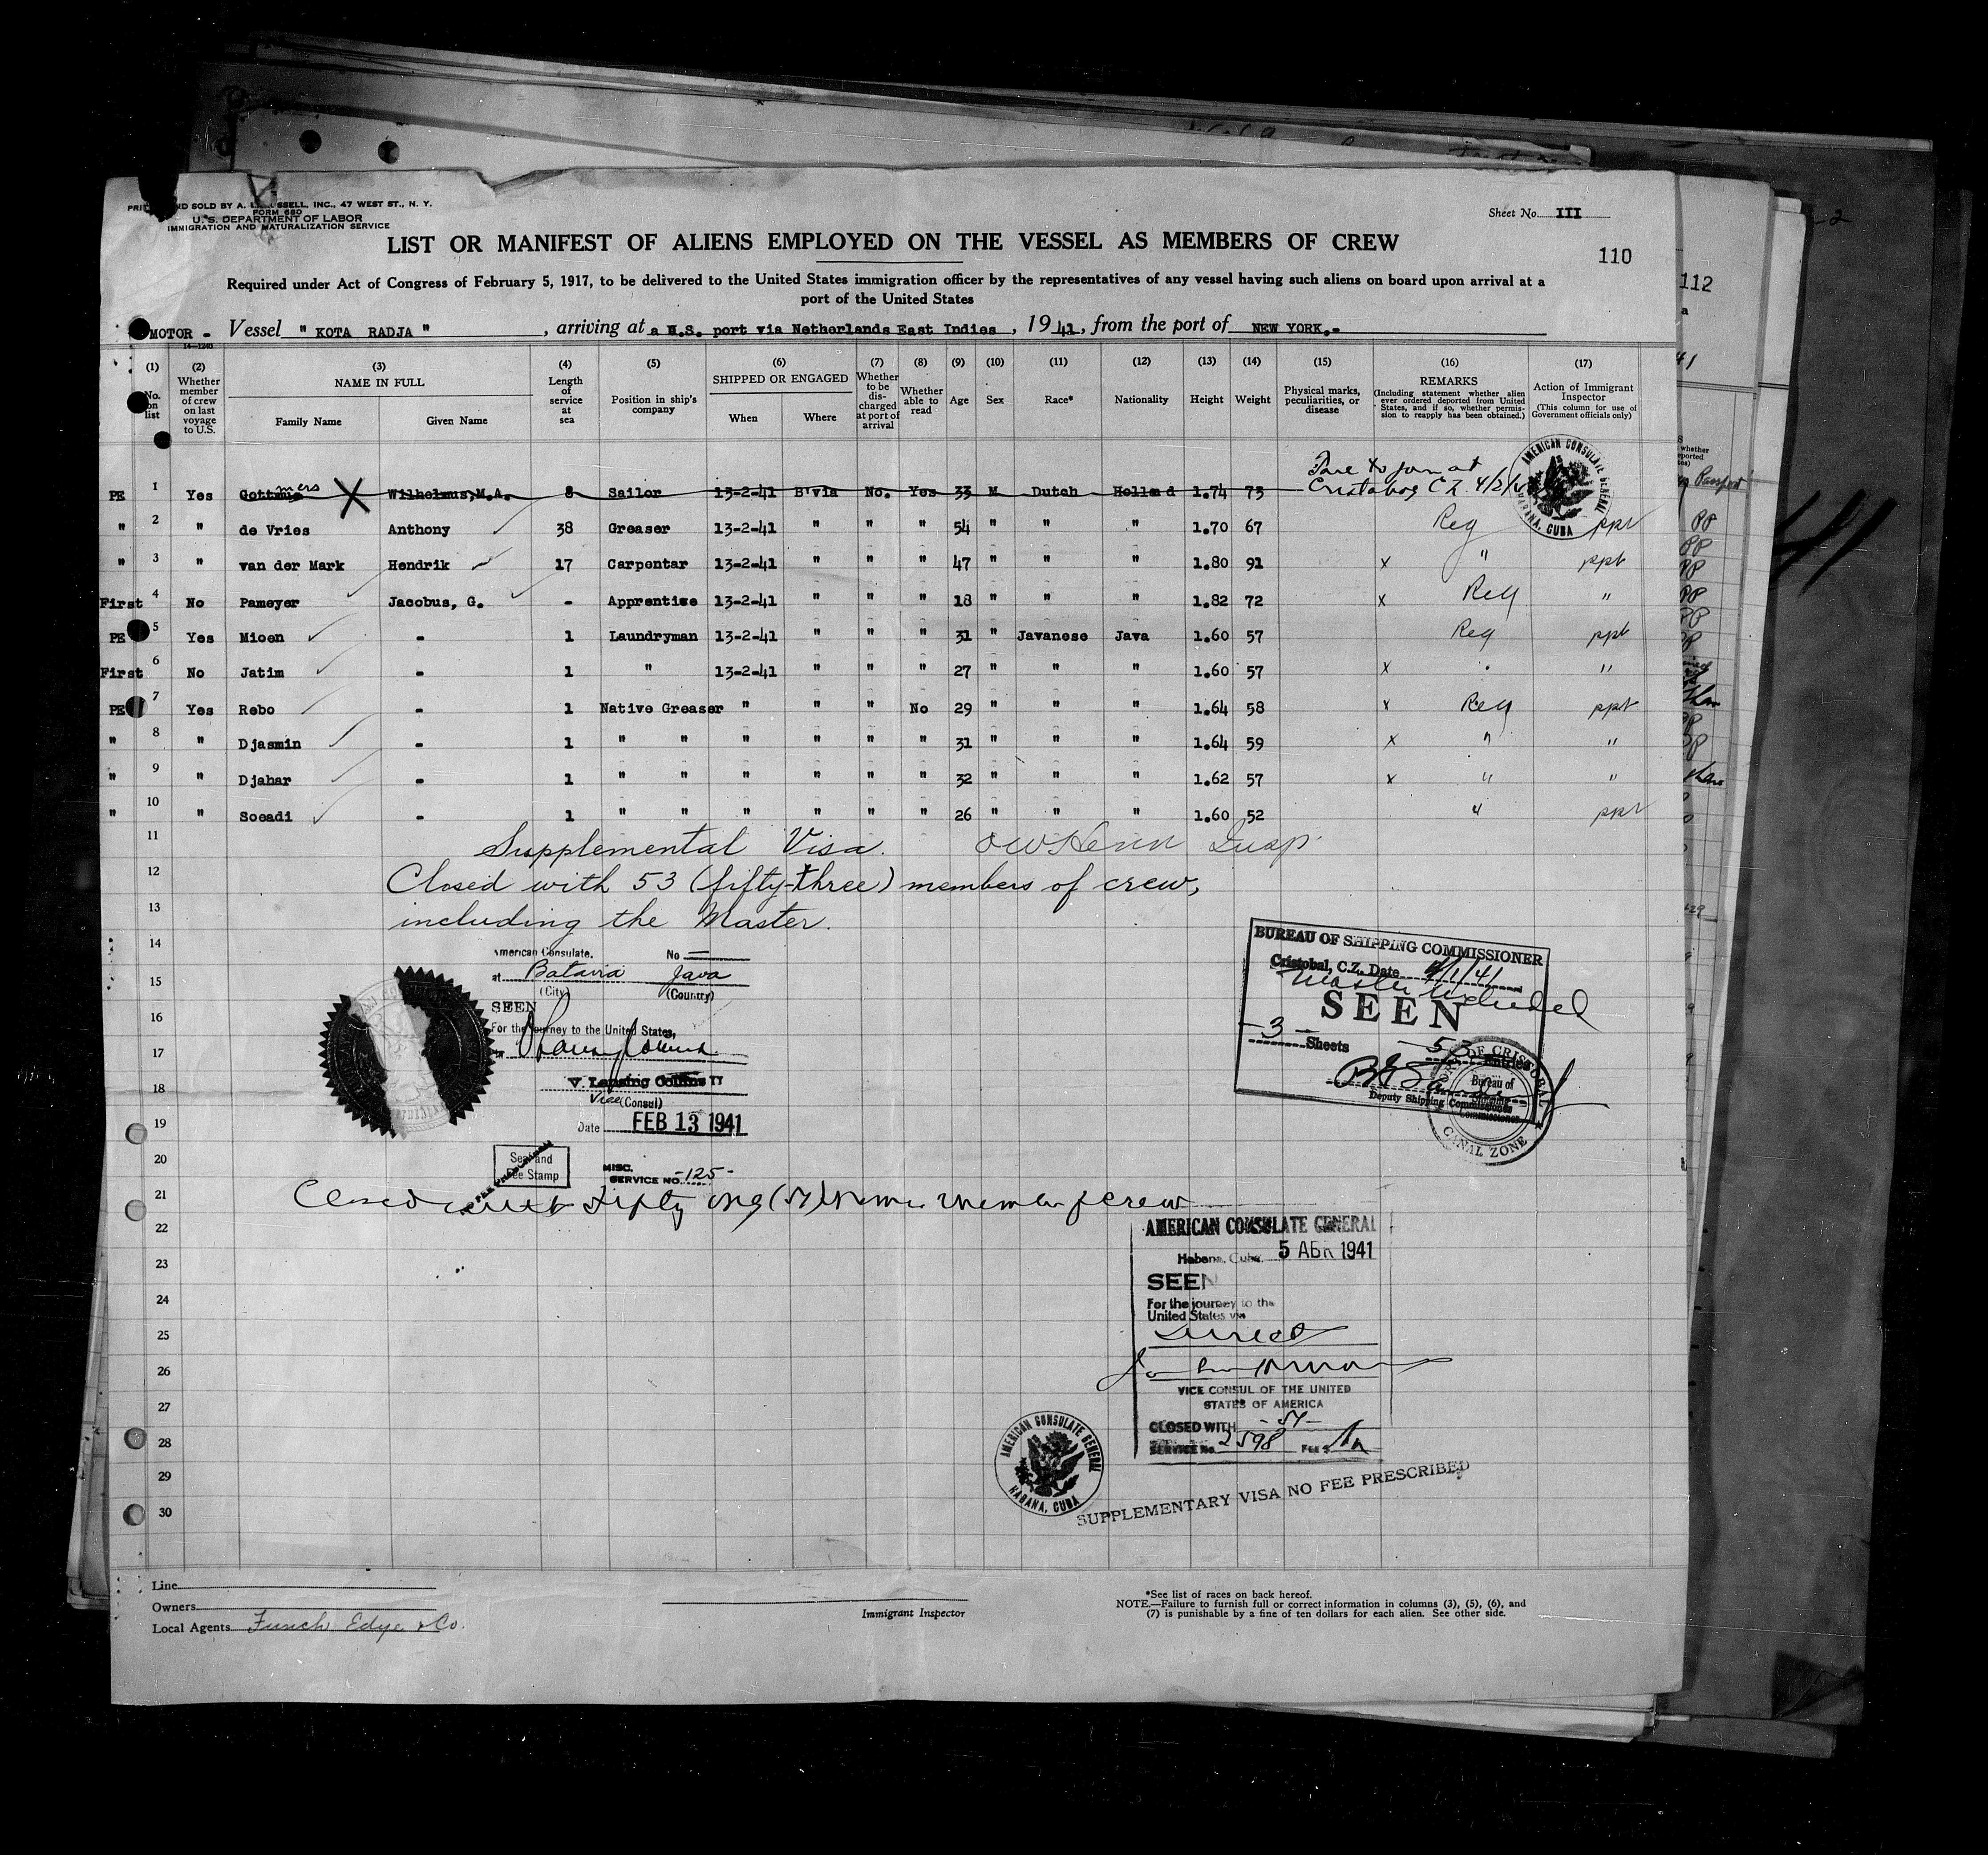 PRI ND SOLD BY A. L. SSELL, INC., 47 WEST ST., N. Y.
FORM 680
U. S. DEPARTMENT OF LABOR
IMMIGRATION AND NATURALIZATION SERVICE
Sheet No. III
LIST OR MANIFEST OF ALIENS EMPLOYED ON THE VESSEL AS MEMBERS OF CREW
110
Required under Act of Congress of February 5, 1917, to be delivered to the United States immigration officer by the representatives of any vessel having such aliens on board upon arrival at a
port of the United States
MOTOR - Vessel " KOTA RADJA " , arriving at a U.S. port via Netherlands East Indies , 19 41, from the port of NEW YORK.-
14—1240
(1) (2) (3) (4) (5) (6) (7) (8) (9) (10) (11) (12) (13) (14) (15) (16) (17)
No. on list
Whether member of crew on last voyage to U.S.
NAME IN FULL
Family Name Given Name
Length of service at sea
Position in ship's company
SHIPPED OR ENGAGED
When Where
Whether to be discharged at port of arrival
Whether able to read
Age
Sex
Race*
Nationality
Height
Weight
Physical marks, peculiarities, or disease
REMARKS
(Including statement whether alien ever ordered deported from United States, and if so, whether permission to reapply has been obtained.)
Action of Immigrant Inspector
(This column for use of Government officials only)
at
Cristobal C.Z.
AMERICAN CONSULATE GENERAL HABANA, CUBA
PE 1 Yes mers X Wilhelmus, M.A. 8 Sailor 13-2-41 B'via No. Yes 33 M Dutch Holland 1.74 73
" 2 " de Vries Anthony 38 Greaser 13-2-41 " " " 54 " " " 1.70 67 Reg ppt
" 3 " van der Mark Hendrik 17 Carpentar 13-2-41 " " " 47 " " " 1.80 91 x " ppt
First 4 No Pameyer Jacobus, G. - Apprentise 13-2-41 " " " 18 " " " 1.82 72 x Reg "
PE 5 Yes Mioen - 1 Laundryman 13-2-41 " " " 31 " Javanese Java 1.60 57 Reg ppt
First 6 No Jatim - 1 " 13-2-41 " " " 27 " " " 1.60 57 x "
PE 7 Yes Rebo - 1 Native Greaser " " " No 29 " " " 1.64 58 x Reg ppt
" 8 " Djasmin - 1 " " " " " " 31 " " " 1.64 59 x " "
" 9 " Djahar - 1 " " " " " " 32 " " " 1.62 57 x " "
" 10 " Soeadi - 1 " " " " " " 26 " " " 1.60 52 " ppt
11
Supplemental Visa. Insp.
12
Closed with 53 (fifty-three) members of crew,
13
including the Master.
14
American Consulate. No —
15
at Batavia Java
(City) (Country)
16
SEEN
For the journey to the United States,
17
18
Vice (Consul)
19
Date FEB 13 1941
20
Seal and
Fee Stamp
MISC.
SERVICE NO. -125-
BUREAU OF SHIPPING COMMISSIONER
Cristobal, C.Z. Date 4/1/41
Master included
SEEN
- 3 - Sheets
Entries
Deputy Shipping Commissioner
PORT OF CRISTOBAL
Bureau of
Shipping
Commissioner
CANAL ZONE
21
Closed with fifty one (51) crew
22
AMERICAN CONSULATE GENERAL
Habana, Cuba. 5 ABR 1941
23
SEEN
24
For the journey to the
United States via
25
direct
26
VICE CONSUL OF THE UNITED
STATES OF AMERICA
27
CLOSED WITH -51-
28
SERVICE No. 2598 FEE $
29
AMERICAN CONSULATE GENERAL
HABANA, CUBA
SUPPLEMENTARY VISA NO FEE PRESCRIBED
30
Line
Owners
Local Agents Funch, Edye & Co.
Immigrant Inspector
*See list of races on back hereof.
NOTE.—Failure to furnish full or correct information in columns (3), (5), (6), and
(7) is punishable by a fine of ten dollars for each alien. See other side.
112